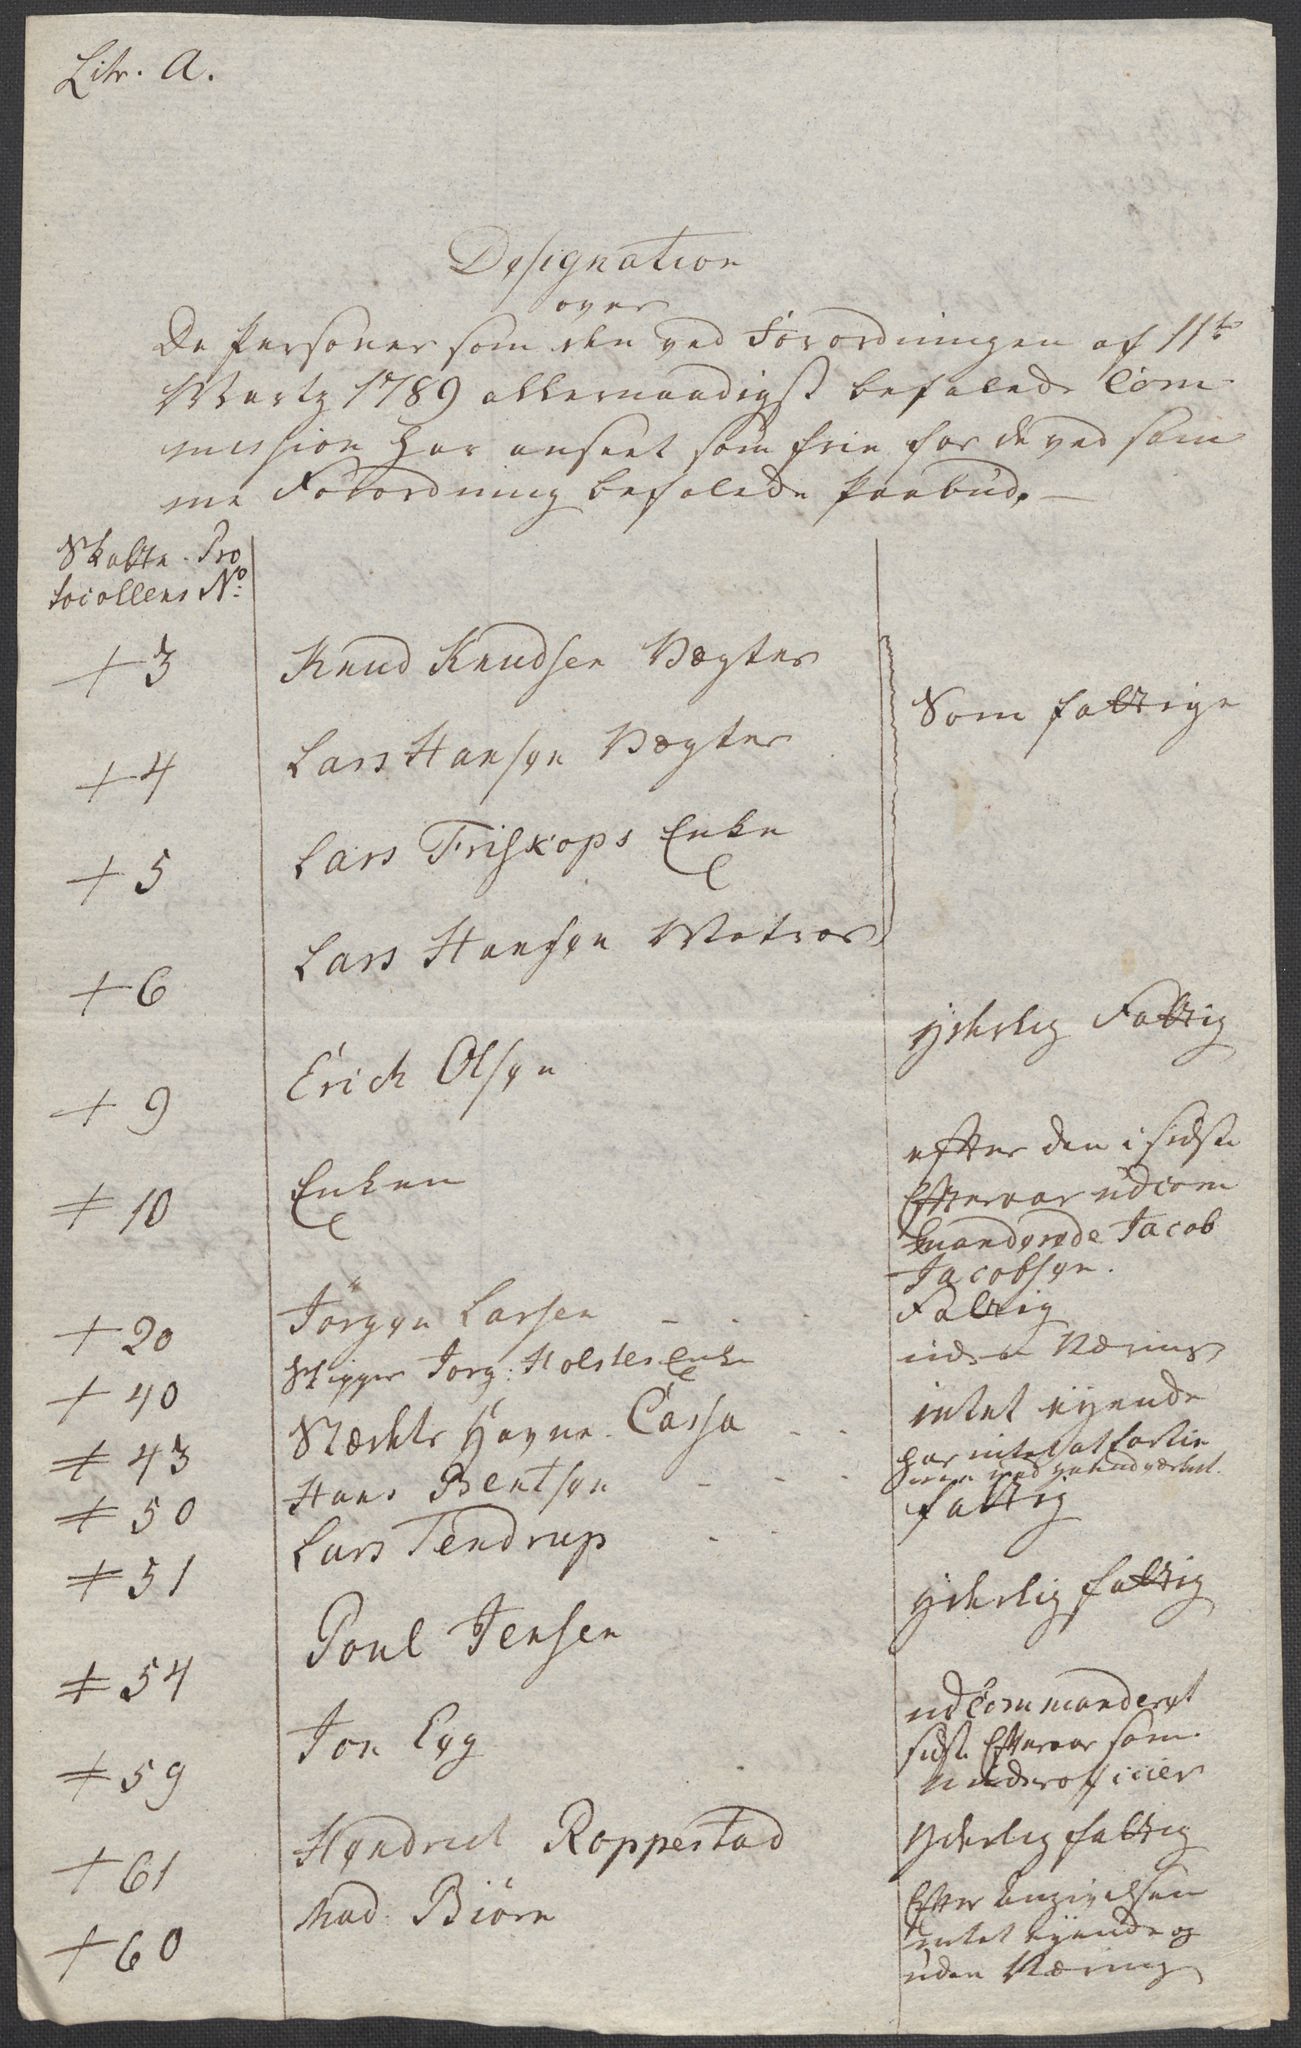 Litr. A.
Designation
over
De Personer som den ved Forordningen af 11te
Martz 1789 allernaadigst befalede Com
mission har anseet som frie for de ved sam
me Forordning befalede Paabud. —
Skatte-Pro
tocollens No:
+ 3 Knud Knudsen Vægter
Som fattige
+ 4 Lars Hansen Vægter
+ 5 Lars Friskops Enke
+ 6 Lars Hansen Matros
+ 9 Erich Olsen yderlig Fattig
‡ 10 Enken efter den i sidste
Efteraar udcom
manderede Jacob
Jacobsen.
+ 20 Jörgen Larsen - . . Fattig
+ 40 Skipper Jorg: Holsters Enke uden Næring
‡ 43 Carsa - - intet eyende
‡ 50 Hans Bentsen - - - har intet at
‡ 51 Lars Tendrup - - fattig
‡ 54 Poul Jensen yderlig fattig
‡ 59 Jon Eeg udcommanderet
sidste Efteraar som
Underofficier
+ 61 Hendrich Roppestad Yderlig fattig
+ 60 Mad: Biörn Efter Angivelsen
intet Eyende og
uden Næring